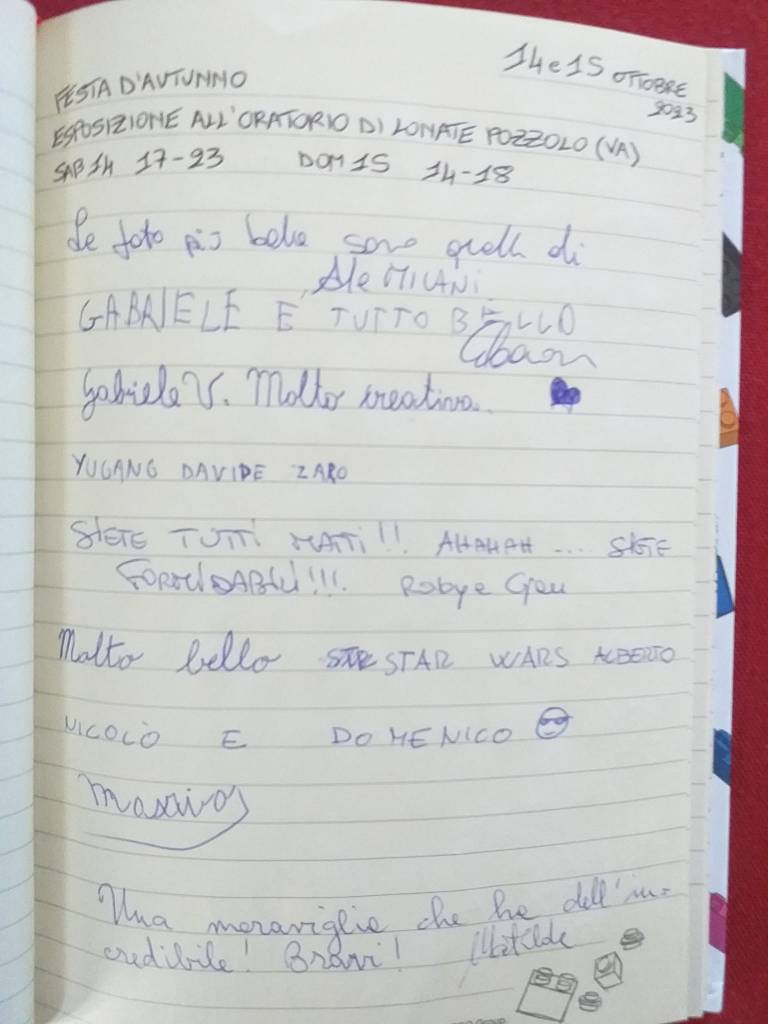 14 e 15 OTTOBRE
2023
FESTA D'AUTUNNO
ESPOSIZIONE ALL'ORATORIO DI LONATE POZZOLO (VA)
SAB 14 17-23 DOM 15 14-18
Le foto più belle sono quelle di
Ale MILANI
GABRIELE È TUTTO BELLO
Gabriele V. Molto creativo.
YUGANG DAVIDE ZARO
SIETE TUTTI MATTI!! AHAHAH ... SIETE
FORMIDABILI!!! Roby e
Molto bello STAR WARS ALBERTO
NICOLÒ E DOMENICO
Una meraviglia che ha dell'in=
credibile! Bravi! Matilde